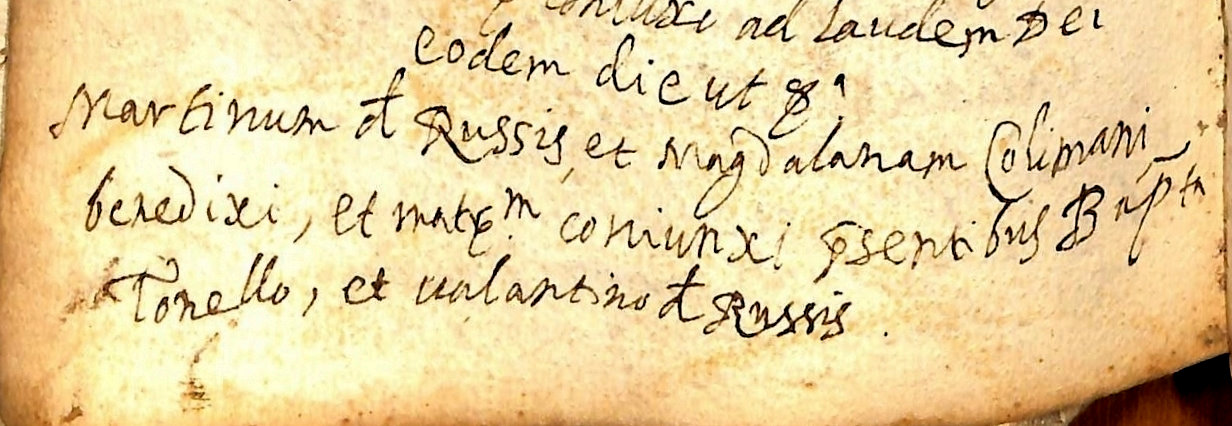 coniuxi ad Laudem Dei
eodem die ut sᵃ
Martinum đ Russis, et Magdalanam Colimani
benedixi, et matrᵐ coniunxi p̄sentibus Bapᵗᵃ
Tonello, et ualantino đ Russis.